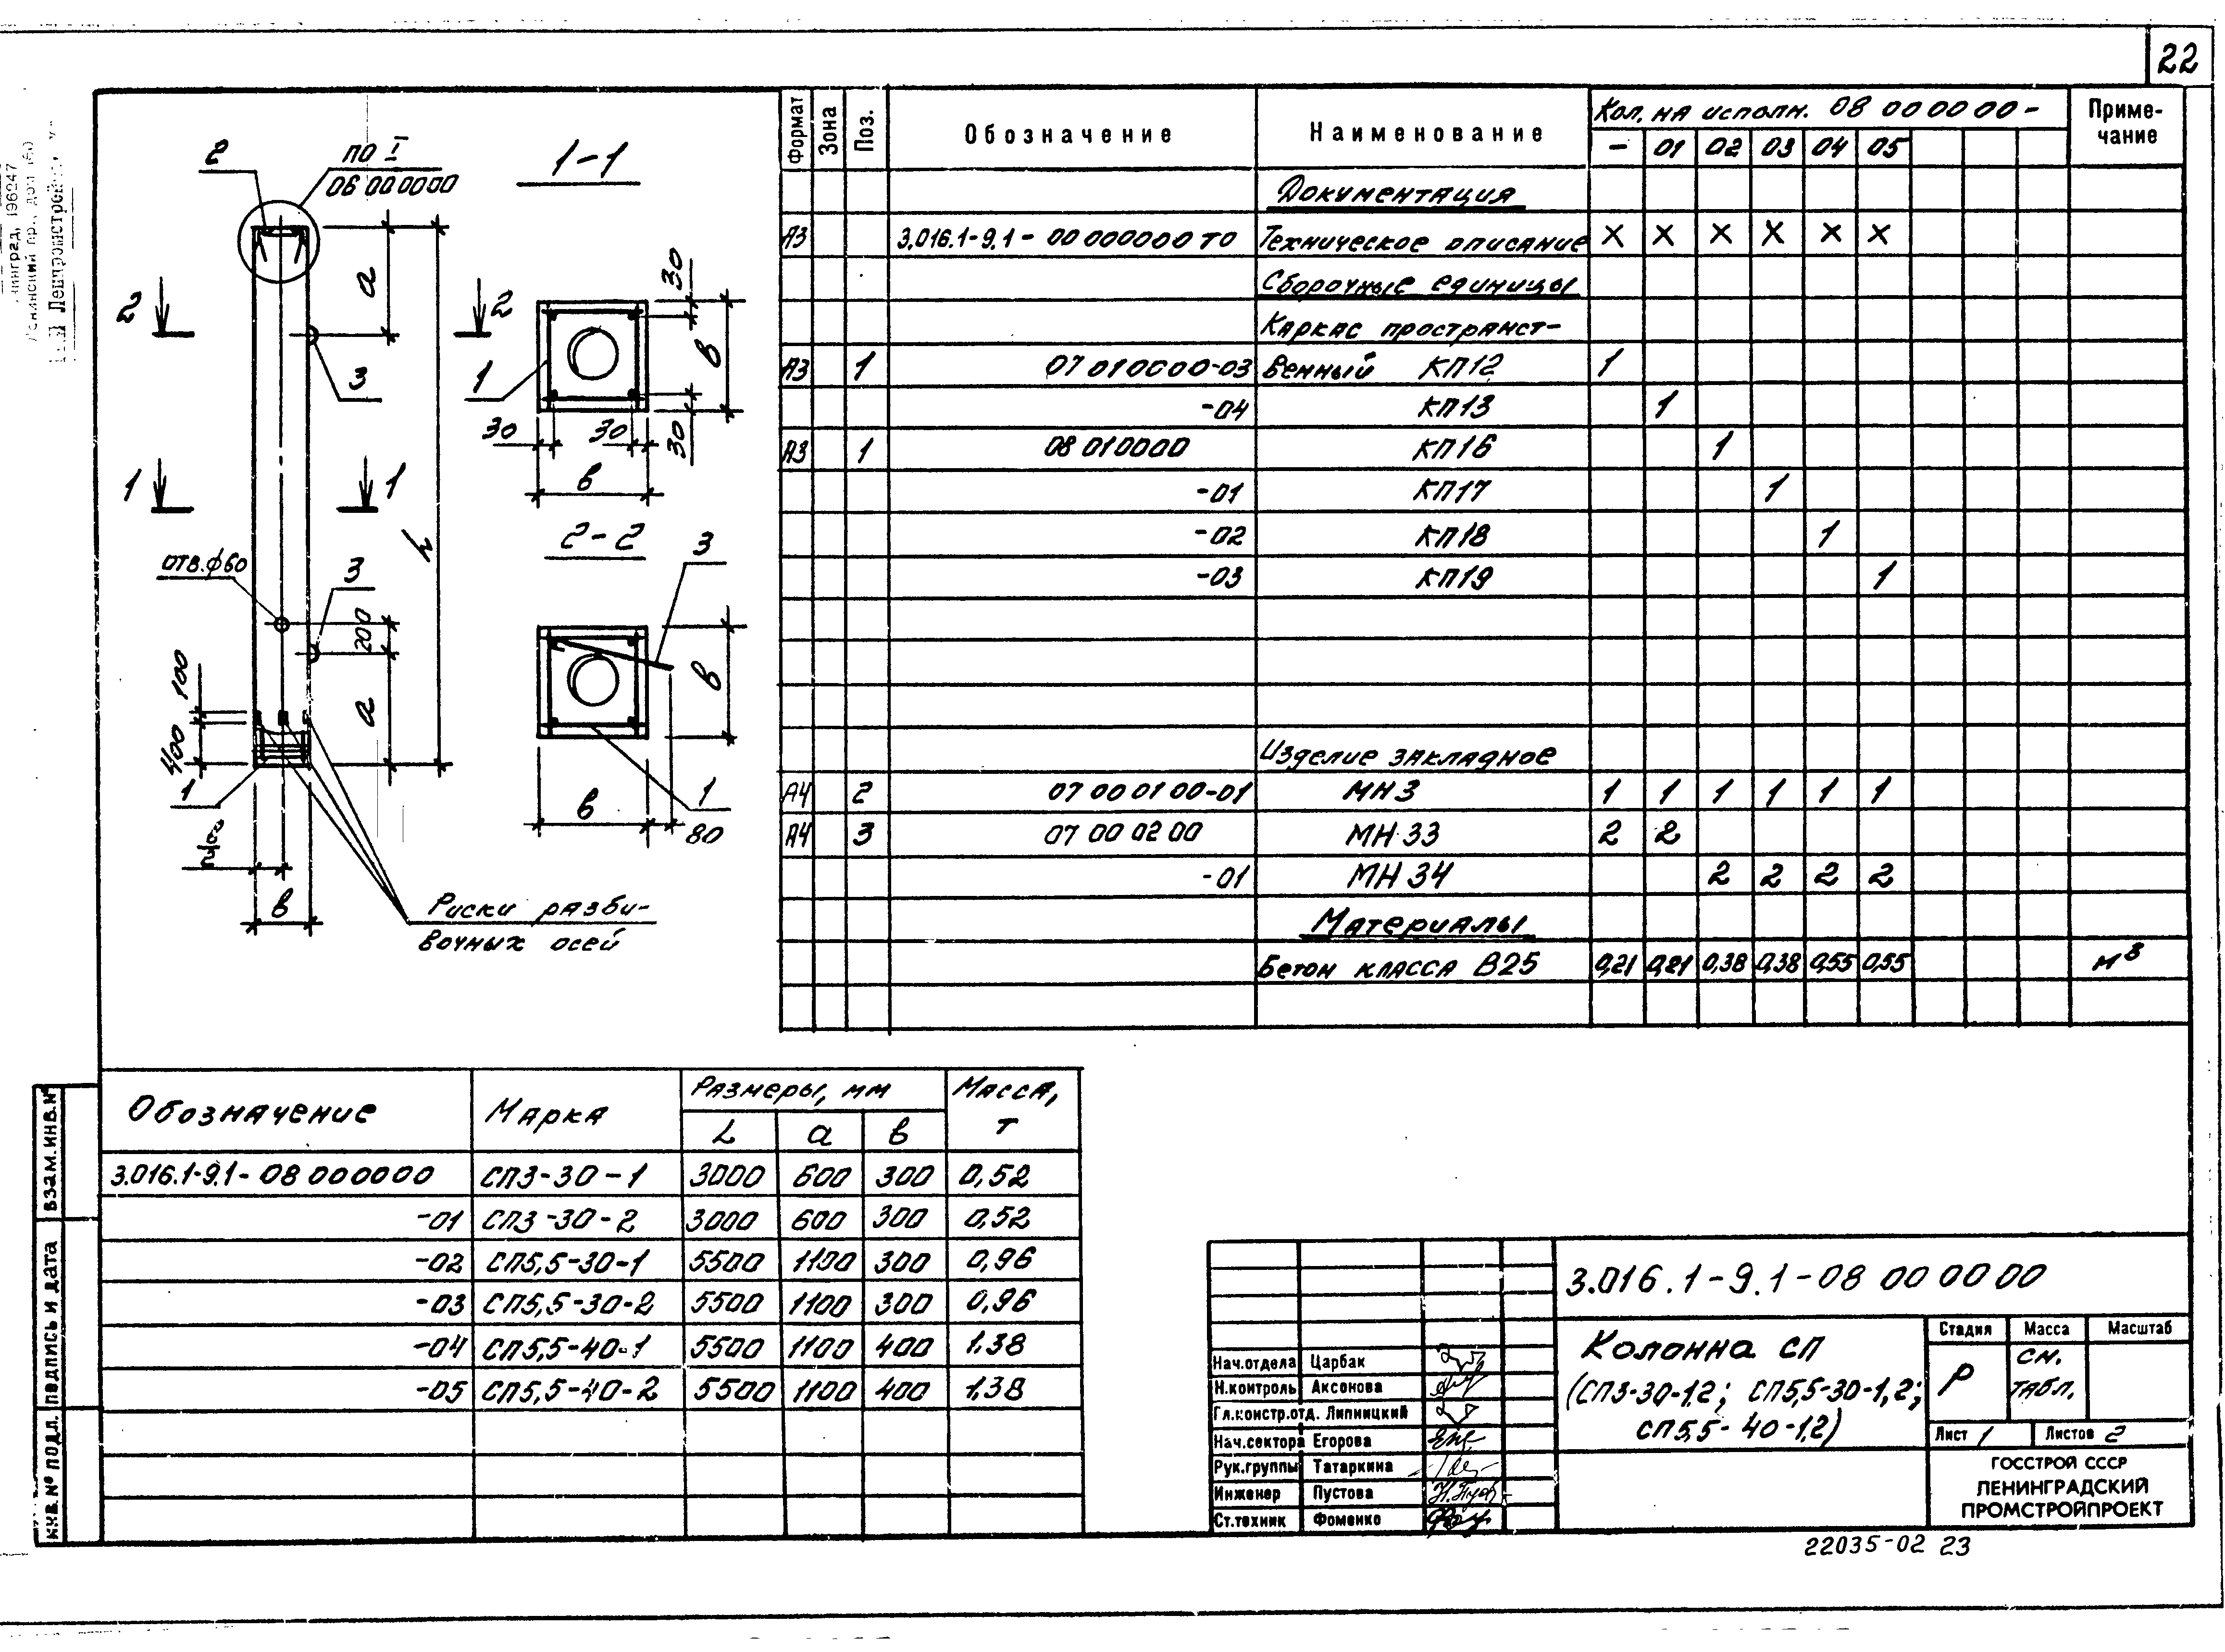 22
2
по I
06 000000
1-1
a
2
2
3
1
30
30
30
30
в
в
1
1
2-2
L
отв.ф60
3
200
a
3
100
400
1
в
в
в
1
80
Риски разби-
вочных осей
Формат Зона Поз. Обозначение Наименование Кол. на исполн. 08 000000- Приме-чание
- 01 02 03 04 05
Документация
А3 3.016.1-9.1-00 000000 ТО Техническое описание X X X X X X
Сборочные единицы
Каркас пространст-
А3 1 07 010000-03 венный КП12 1
-04 КП13 1
А3 1 08 010000 КП16 1
-01 КП17 1
-02 КП18 1
-03 КП19 1
Изделие закладное
А4 2 07 00 01 00-01 МН3 1 1 1 1 1 1
А4 3 07 00 02 00 МН33 2 2
-01 МН34 2 2 2 2
Материалы
Бетон класса В25 0,21 0,21 0,38 0,38 0,55 0,55 м3
Обозначение Марка Размеры, мм Масса, т
L a в
3.016.1-9.1-08 000000 СП3-30-1 3000 600 300 0,52
-01 СП3-30-2 3000 600 300 0,52
-02 СП5,5-30-1 5500 1100 300 0,96
-03 СП5,5-30-2 5500 1100 300 0,96
-04 СП5,5-40-1 5500 1100 400 1,38
-05 СП5,5-40-2 5500 1100 400 1,38
Взам.инв.№
Подпись и дата
Инв.№ подл.
3.016.1-9.1-08 00 00 00
Колонна СП
(СП3-30-1,2; СП5,5-30-1,2;
СП5,5-40-1,2)
Стадия Масса Масштаб
Р см. табл.
Лист 1 Листов 2
ГОССТРОЙ СССР
ЛЕНИНГРАДСКИЙ
ПРОМСТРОЙПРОЕКТ
Нач.отдела Царбак
Н.контроль Аксенова
Гл.констр.отд. Липницкий
Нач.сектора Егорова
Рук.группы Татаркина
Инженер Пустова
Ст.техник Фоменко
22035-02 23